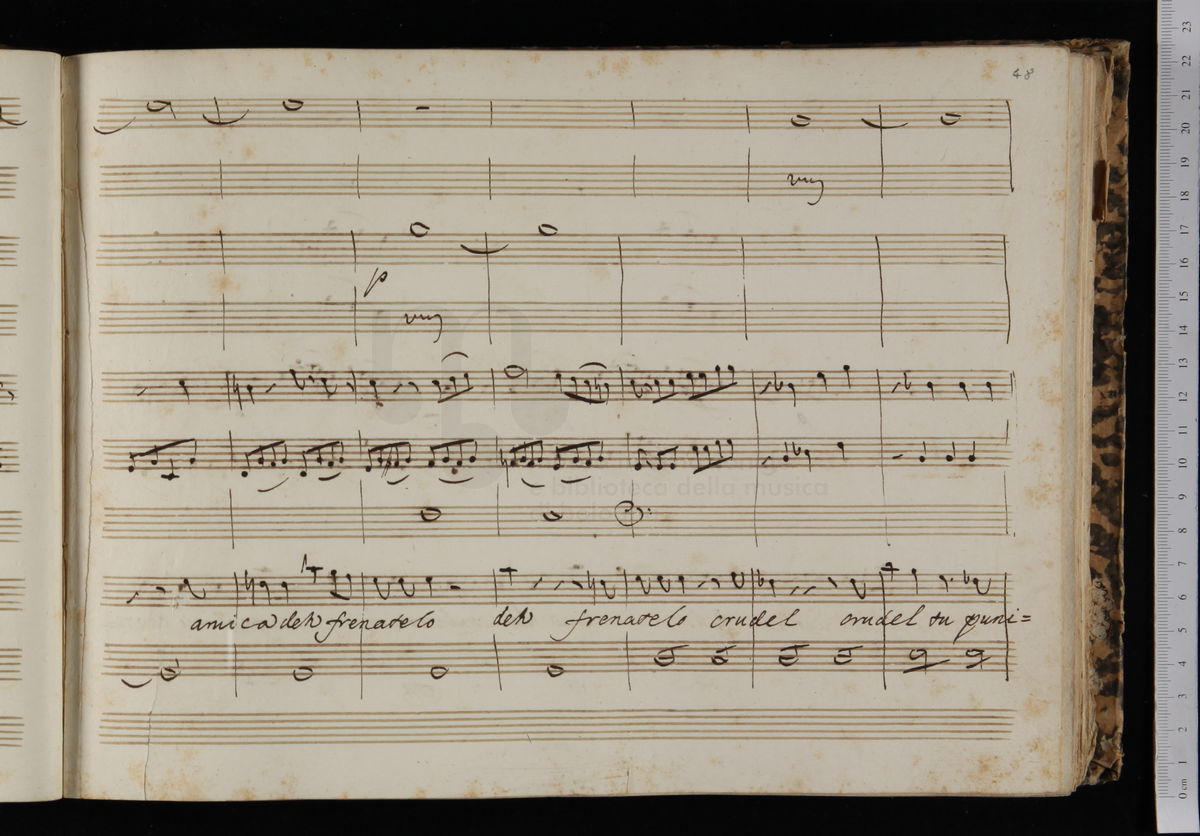 48
p
amica deh frenatelo deh frenatelo crudel crudel tu puni=
e biblioteca della musica
23
22
21
20
19
18
17
16
15
14
13
12
11
10
9
8
7
6
5
4
3
2
1
0 cm